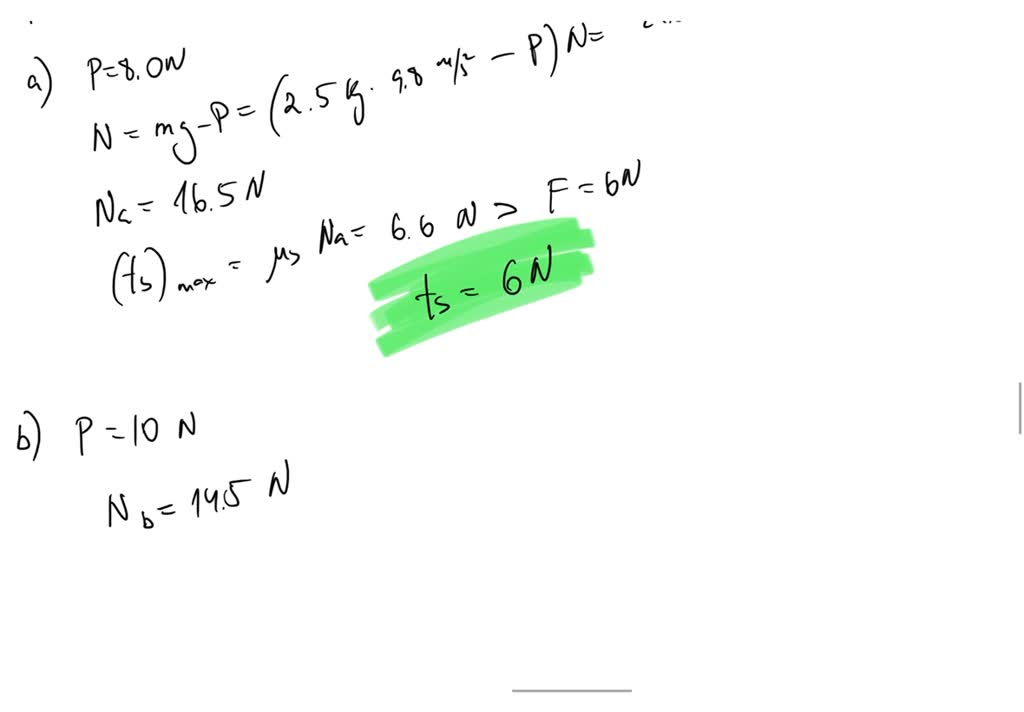 a) P=8.0N
N = mg-P = (2.5 kg · 9.8 m/s² - P) N =
Na = 16.5 N
(fs)max = μs Na = 6.6 N > F = 6N
fs = 6N
b) P = 10 N
Nb = 14.5 N